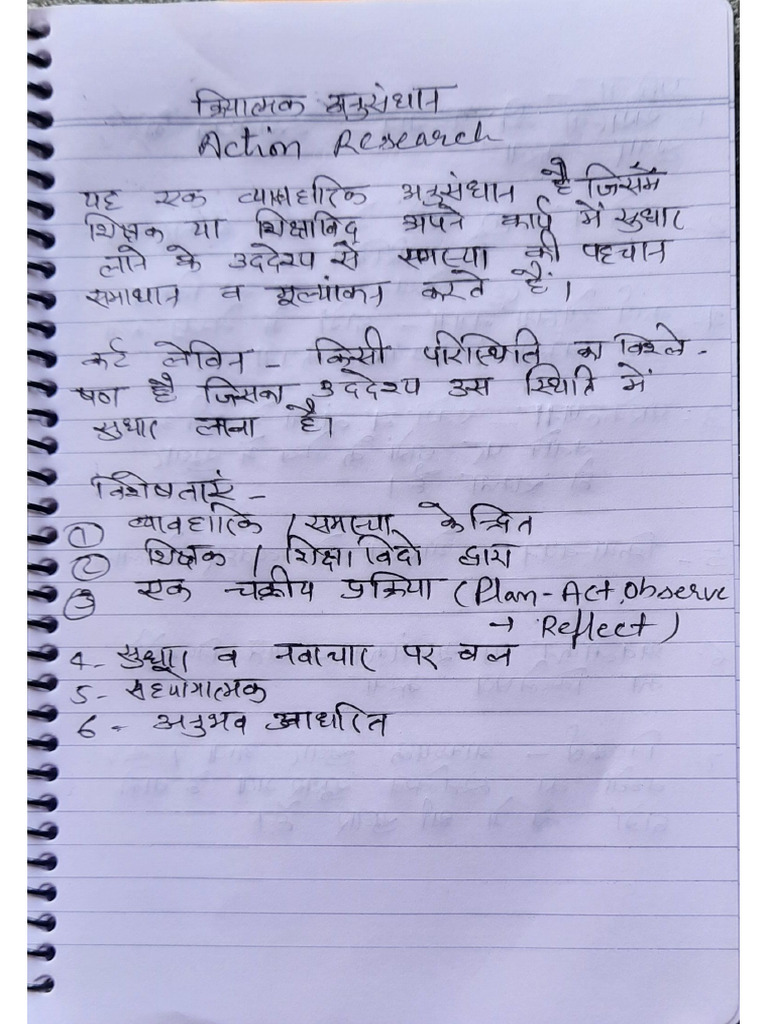 क्रियात्मक अनुसंधान
Action Research
यह एक व्यावहारिक अनुसंधान है जिसमें
शिक्षक या शिक्षाविद् अपने कार्य में सुधार
लाने के उददेश्य से समस्या की पहचान
समाधान व मूल्यांकन करते हैं।
कर्ट लेविन - किसी परिस्थिति का विश्ले-
षण है जिसका उददेश्य उस स्थिति में
सुधार लाना है।
विशेषताएं -
① व्यावहारिक / समस्या केन्द्रित
② शिक्षक / शिक्षाविदो द्वारा
③ एक चक्रीय प्रक्रिया (Plan-Act, Observe
→ Reflect)
4- सुधार व नवाचार पर बल
5- सहयोगात्मक
6- अनुभव आधारित